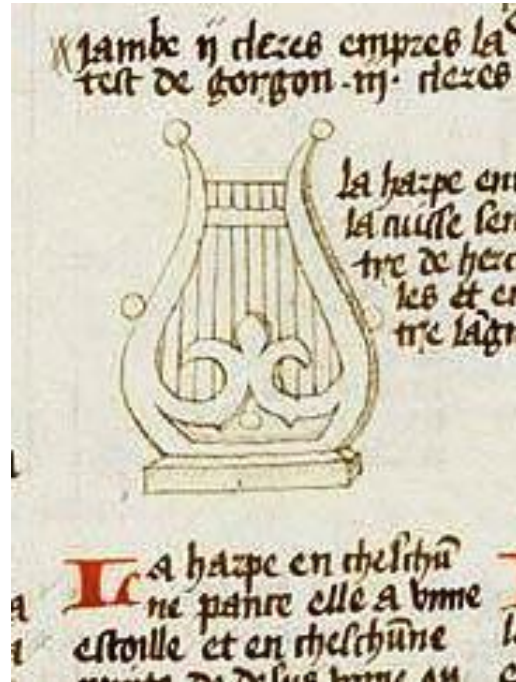 jambe ij cleres empres la
test de gorgon .iij. cleres
la harpe en
la cuisse sen
tre de herc
les et en
tre lagn
La harpe en cheschū
ne pance elle a vnne
estoille et en cheschūne
de desus vnne au